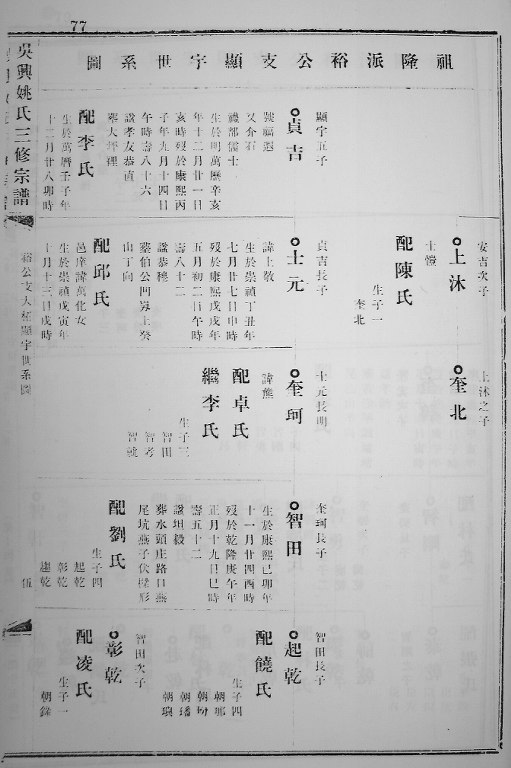 77
圖系世宇顯支公裕派隆祖
吳興姚氏三修宗譜
裕公支大極顯宇世系圖
安吉次子
上沐
士愷
配陳氏
生子一
奎北
上沐之子
奎北
顯宇五子
貞吉
又介石
禮部儒士
生於明萬曆辛亥
年十二月廿一日
亥時歿於康熙丙
子年九月十四日
午時壽八十六
諡孝友恭貞
葬大坪裡
配李氏
生於萬曆壬子年
十二月廿八卯時
貞吉長子
士元
諱上敬
生於崇禎丁丑年
七月廿七日申時
歿於康熙戊戌年
五月初二日午時
壽八十二
諡恭穆
葬伯公凹崀上癸
山丁向
配邱氏
邑庠諱萬化女
生於崇禎戊寅年
十月十三日戌時
士元長明
奎珂
諱熊
配卓氏
繼李氏
生子三
智田
智考
智誠
奎珂長子
智田
生於康熙己卯年
十一月廿四酉時
歿於乾隆庚午年
正月十九日巳時
壽五十二
諡坦毅
葬水頭庄路口燕
尾坑燕子伏樑形
配劉氏
生子四
起乾
彰乾
趨乾
智田長子
起乾
配饒氏
生子四
朝郍
朝紛
朝璠
朝璵
智田次子
彰乾
配凌氏
生子一
朝錄